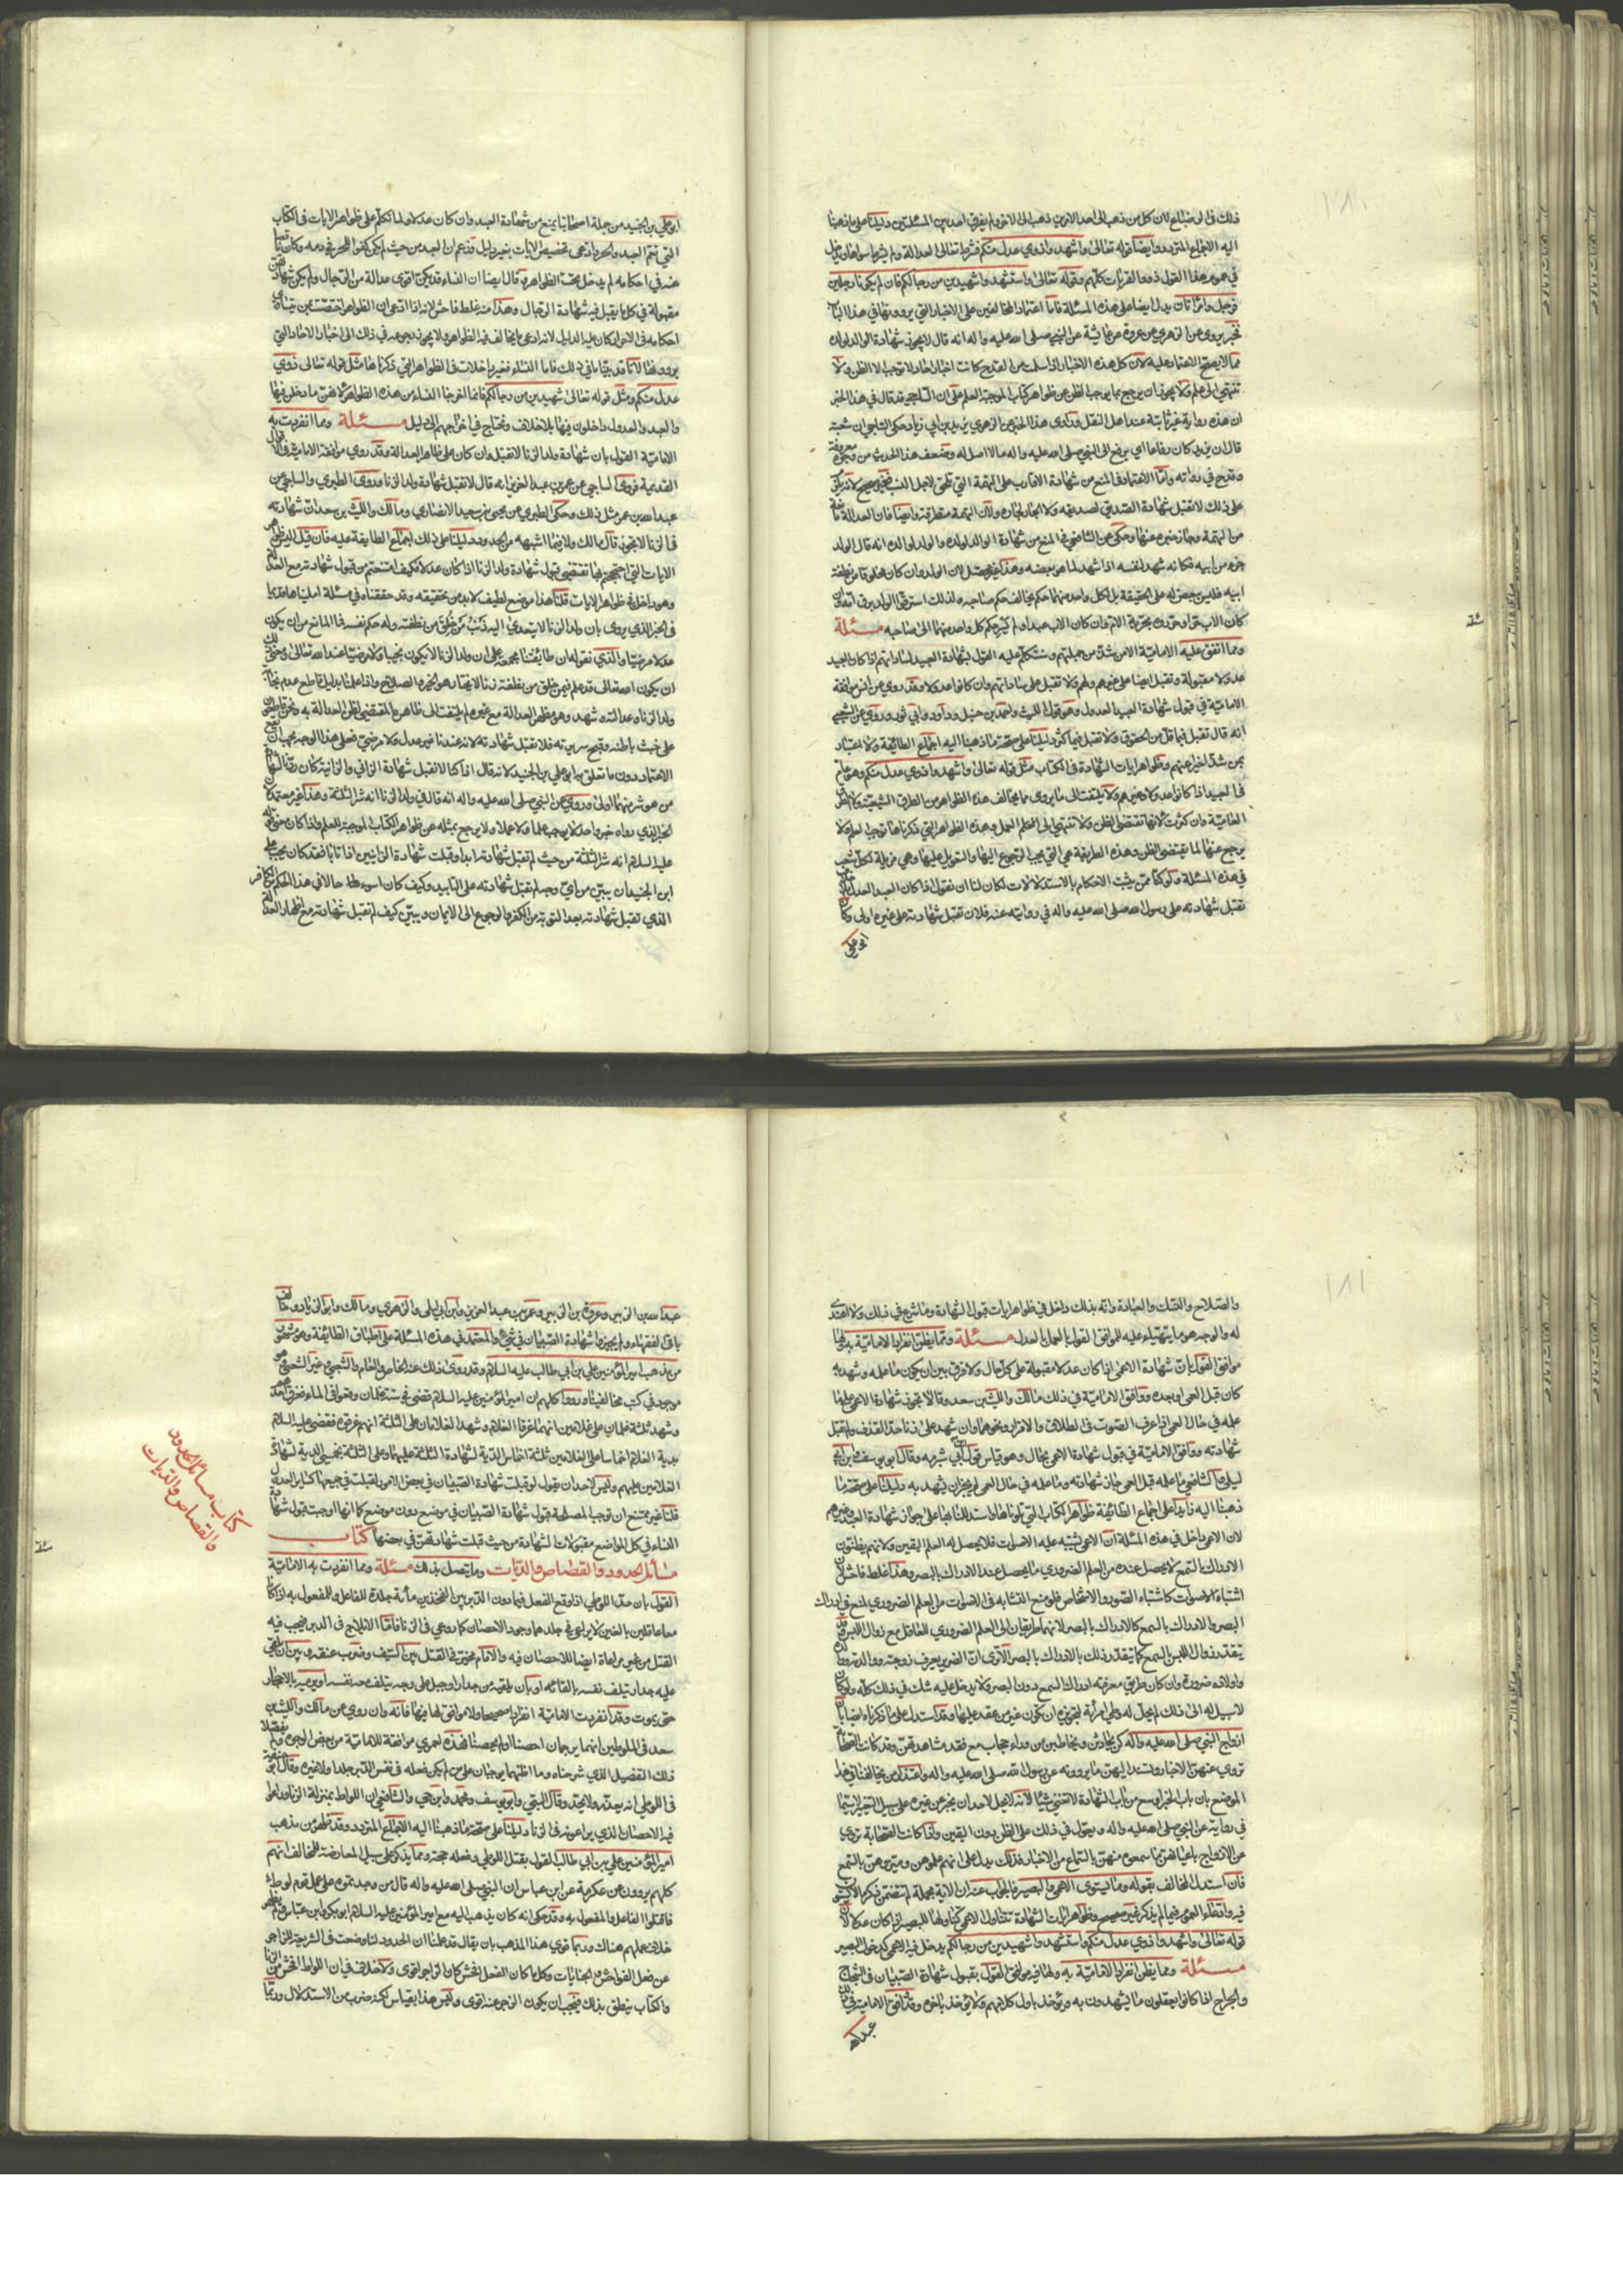 ذلك في الرضاع لان كل من ذهب الى احد الامرين ذهب الى الاخر ولم يفرق احد بين المسئلتين دليلنا على ما ذهبنا
اليه الاجماع المتردد وايضا قوله تعالى واشهدوا ذوي عدل منكم فشرط تعالى العدالة ولم يشرط سواها ويدخل
في عموم هذا القول ذووا القرابات كلهم وقوله تعالى واستشهدوا شهيدين من رجالكم فان لم يكونا رجلين
فرجل وامرأتان يدل ايضا على هذه المسئلة فاما اعتماد المخالفين على الاخبار التي يروونها في هذا الباب
فخبر يروى عن الزهري عن عروة عن عائشة عن النبي صلى الله عليه واله انه قال لا يجوز شهادة الوالد لولده
مما لا يصح الاعتماد عليه لان كل هذه الاخبار اذا سلمت من القدح كانت اخبار احاد لا توجب الا الظن ولا
تنتهي الى علم ولا يجوز ان يرجع بما يوجب الظن عن ظواهر كتاب الله الموجبة للعلم على ان الساجي قد قال في هذا الخبر
ان هذه رواية غير ثابتة عند اهل النقل وراوي هذا الخبر عن الزهري يزيد بن ابي زياد حكى الساجي ان شعبة
قال ان يزيد كان رفاعا اي يرفع الى النبي صلى الله عليه واله ما لا اصل له وضعف هذا الحديث من وجوه معروفة
وقدح في رواته واما الاعتماد في المنع من شهادة الاقارب على التهمة التي تلحق لاجل النسب فغير صحيح لانه يلزم
على ذلك لا تقبل شهادة الصديق لصديقه ولا الجار لجاره ولان التهمة متطرقة وايضا فان العدالة مانعة
من التهمة وحاجزة عنها وحكي عن الشافعي في المنع من شهادة الوالد لولده والولد لوالده انه قال الولد
جزء من ابيه فكانه شهد لنفسه اذا شهد لما هو بعضه وهذا غير محصل لان الولد وان كان مخلوقا من نطفة
ابيه فليس ببعض له على الحقيقة بل لكل واحد منهما حكم يخالف حكم صاحبه ولذلك استرق الولد برق امه وان
كان الاب حرا وحرروه بحرية الام وان كان الاب عبدا ولم يسر حكم كل واحد منهما الى صاحبه مسئلة
ومما اتفق عليه الامامية الا من شذ من جملتهم وسنتكلم عليه القول بشهادة العبيد لساداتهم اذا كان العبيد
عدولا مقبولة وتقبل ايضا على غيرهم ولهم ولا تقبل على ساداتهم وان كانوا عدولا وقد روي عن انس موافقة
الامامية في قبول شهادة العبيد العدول وهو قول الليث واحمد بن حنبل وداود وابي ثور وروي عن الشعبي
انه قال تقبل فيما قل من الحقوق ولا تقبل فيما كثر دليلنا على صحة ما ذهبنا اليه اجماع الطائفة ولا اعتبار
بمن شذ اخيرا عنهم وظواهر ايات الشهادة في الكتاب مثل قوله تعالى واشهدوا ذوي عدل منكم وهو عام
في العبيد اذا كانوا عدولا وغيرهم ولا يلتفت الى ما يروى مما يخالف هذه الظواهر من الطرق الشيعية ولا الطرق
العامية وان كثرت لانها تقتضي الظن ولا تنتهي الى العلم والعمل وهذه الظواهر التي ذكرناها توجب العلم ولا
يرجع عنها لما يقتضي الظن وهذه الطريقة هي التي يجب الرجوع اليها والتعويل عليها وهي مزيلة لكل شعب
في هذه المسئلة ولو كنا ممن يثبت الاحكام بالاستدلالات لكان لنا ان نقول اذا كان العبد العدل
تقبل شهادته على رسول الله صلى الله عليه واله في روايته عنه فلان تقبل شهادته على غيره اولى وكان
ابو علي
ابو علي بن الجنيد من جملة اصحابنا يمنع من شهادة العبد وان كان عدلا ولما تكلم على ظواهر الايات في الكتاب
التي تعم العبد والحر ادعى تخصيص الايات بغير دليل وزعم ان العبد من حيث لم يكن كفوا للحر في دمه وكان ناقصا
عنه في احكامه لم يدخل تحت الظواهر وقال ايضا ان النساء قد يكن اقوى عدالة من الرجال ولم يكن شهادتهن
مقبولة في كل ما يقبل فيه شهادة الرجال وهذا منه غلط فاحش لانه اذا ادعى ان الظواهر اختصت بمن يتساوى
احكامه في الاحرار كان عليه الدليل لانه ادعى ما يخالف فيه الظواهر ولا يجوز رجوعه في ذلك الى اخبار الاحاد التي
يروونها لانا قد بينا ما في ذلك فاما النساء فغير داخلات في الظواهر التي ذكرناها مثل قوله تعالى ذوي
عدل منكم ومثل قوله تعالى شهيدين من رجالكم فانما اخرجنا النساء من هذه الظواهر لانهن ما دخلن فيها
والعبد والعدول داخلون فيها بلا خلاف ونحتاج في اخراجهم الى دليل مسئلة ومما انفردت به
الامامية القول بان شهادة ولد الزنا لا تقبل وان كان على ظاهر العدالة وقد روي موافقة الامامية في الاقوال
القديمة فروى الساجي عن عمر بن عبد العزيز انه قال لا تقبل شهادة ولد الزنا وروى الطبري والساجي عن
عبد الله بن عمر مثل ذلك وحكى الطبري عن يحيى بن سعيد الانصاري ومالك والليث بن سعد ان شهادته
في الزنا لا يجوز قال مالك ولا فيما اشبهه من الحدود دليلنا على ذلك اجماع الطايفة عليه فان قيل اليس ظواهر
الايات التي احتججتم بها تقتضي قبول شهادة ولد الزنا اذا كان عدلا فكيف امتنعتم من قبول شهادته مع العدالة
وهو داخل في ظواهر الايات قلنا هذا موضع لطيف لا بد من تحقيقه وقد حققناه في مسئلة امليناها قديما
في الخبر الذي يروى بان ولد الزنا لا يتعدى اليه ذنب من خلق من نطفته وله حكم نفسه فما المانع من ان يكون
عدلا مرضيا والذي نقوله ان طائفتنا مجمعة على ان ولد الزنا لا يكون نجيبا ولا مرضيا عند الله تعالى ومعنى ذلك
ان يكون الله تعالى قد علم فيمن خلق من نطفة زنا الا يختار هو الخير والصلاح واذا علمنا بدليل قاطع عدم نجابة
ولد الزنا وعدالته وشهد وهو مظهر للعدالة مع غيره لم يلتفت الى ظاهره المقتضي لظن العدالة به ونحن قاطعون
على خبث باطنه وقبيح سريرته فلا تقبل شهادته لانه عندنا غير عدل ولا مرضي فعلى هذا الوجه يجب ان يقع
الاعتماد دون ما تعلق به ابو علي بن الجنيد لانه قال اذا كنا لا نقبل شهادة الزاني والزانية كان ردنا لشهادة
من هو شر منهما اولى وروي عن النبي صلى الله عليه واله انه قال في ولد الزنا انه شر الثلثة وهذا غير معتمد لان
الخبر الذي رواه خبر واحد لا يوجب علما ولا عملا ولا يرجع بمثله عن ظواهر الكتاب الموجبة للعلم واذا كان معنى قوله
عليه السلام انه شر الثلثة من حيث لم تقبل شهادته ابدا وقبلت شهادة الزانيين اذا تابا فقد كان يجب على
ابن الجنيد ان يبين من اي وجه لم تقبل شهادته على التابيد وكيف كان اسوء حالا في هذا الحكم من الكافر
الذي تقبل شهادته بعد التوبة من الكفر والرجوع الى الايمان ويبين كيف لم تقبل شهادته مع اظهار العدالة
والصلاح والنسك والعبادة وانه بذلك داخل في ظواهر ايات قبول الشهادة وما شرع في ذلك ولا اهتدى
له والوجه هو ما نبهنا عليه الموافق للقول بالعمل بالعدل مسئلة ومما يظن انفراد الامامية به ولها
موافق القول بان شهادة الاعمى اذا كان عدلا مقبولة على كل حال ولا فرق بين ان يكون ما علمه وشهد به
كان قبل العمى او بعده ووافق الامامية في ذلك مالك والليث بن سعد وقالا تجوز شهادة الاعمى على ما
علمه في حال العمى اذا عرف الصوت في الطلاق والاقرار ونحوهما وان شهد على زنا حد القذف ولم تقبل
شهادته ووافق الامامية في قبول شهادة الاعمى بحال وهو قياس قول ابن شبرمه وقال ابو يوسف وابن ابي
ليلى والشافعي ما علمه قبل العمى جاز شهادته وما علمه في حال العمى لم يجز ان يشهد به دليلنا على صحة ما
ذهبنا اليه زايدا على اجماع الطائفة ظواهر الكتاب التي تلوناها واستدللنا بها على جواز شهادة العبيد وغيرهم
لان الاعمى داخل في هذه المسئلة ان الاعمى تشتبه عليه الاصوات فلا يحصل له العلم اليقين ولانهم يظنون
الادراك بالسمع لا يحصل عنده من العلم الضروري ما يحصل عند الادراك بالبصر وهذا غلط فاحش لان
اشتباه الاصوات كاشتباه الصور والاشخاص فلو منع التشابه في الاصوات من العلم الضروري لمنع في ادراك
البصر والادراك بالسمع كالادراك بالبصر لانهما طريقان الى العلم الضروري للعاقل مع زوال اللبس وقد
يتعذر زوال اللبس بالسمع كما يتعذر ذلك بالادراك بالبصر الا ترى ان الضرير يعرف زوجته ووالديه
واولاده ضرورة وان كان طريق معرفته ادراك السمع دون البصر ولا يدخل عليه شك في ذلك كله ولو كان
لا سبيل له الى ذلك لم يحل له وطي امرأته لتجويزه ان تكون غير من عقد عليها وقد استدل على ما ذكرناه ايضا بان
ازواج النبي صلى الله عليه واله كن يحادثن ويخاطبن من وراء حجاب مع فقد مشاهدتهن وقد كانت الصحابة
تروي عنهن الاخبار وتسند اليهن ما يروونه عن رسول الله صلى الله عليه واله واعتذار من يخالفنا في هذا
الموضع بان باب الخبر اوسع من باب الشهادة لا تغني شيئا لانه لا يحل لاحد ان يخبر عن غيره على سبيل التعيين لا سيما
في رواية عن النبي صلى الله عليه واله ويعول في ذلك على الظن دون اليقين واذا كانت الصحابة تروي
عن الازواج باعيانهن بما سمعوه منهن بالسماع من الاخبار فذلك يدل على انهم علموهن وميزوهن بالسمع
فان استدل المخالف بقوله وما يستوي الاعمى والبصير فالجواب عنه ان الاية مجملة لم تتضمن ذكر ما لا يستوون
فيه وادعاء العموم فيما لم يذكر غير صحيح وظواهر ايات الشهادة تتناول الاعمى كتناولها للبصير اذا كان عدلا لان
قوله تعالى واشهدوا ذوي عدل منكم واستشهدوا شهيدين من رجالكم يدخل فيه الاعمى كدخول البصير
مسئلة ومما يظن انفراد الامامية به ولها فيه موافق القول بقبول شهادة الصبيان في الشجاج
والجراح اذا كانوا يعقلون ما يشهدون به ويؤخذ باول كلامهم ولا يؤخذ باخره وقد وافق الامامية في ذلك
عبد الله
عبد الله بن الزبير وعروة بن الزبير وعمر بن عبد العزيز وابن ابي ليلى والزهري ومالك وابو الزناد وخالف
باقي الفقهاء ولم يجيزوا شهادة الصبيان في شيء والمعتمد في هذه المسئلة على اطباق الطائفة وهو مشهور
من مذهب امير المؤمنين علي بن ابي طالب عليه السلام وقد روى ذلك عنه الخاص والعام والشيعي وغير الشيعي وهو
موجود في كتب مخالفينا ورووا كلهم ان امير المؤمنين عليه السلام قضى في ستة غلمان وقعوا في الماء فغرق احدهم
وشهد ثلثة غلمان على غلامين انهما غرقا الغلام وشهد الغلامان على الثلثة انهم غرقوه فقضى عليه السلام
بدية الغلام اخماسا على الغلامين ثلثة اخماس الدية لشهادة الثلثة عليهما وعلى الثلثة بخمسي الدية لشهادة
الغلامين عليهم وليس لاحد ان يقول لو قبلت شهادة الصبيان في بعض الامور لقبلت في جميعها كساير العدول
قلنا غير ممتنع ان توجب المصلحة قبول شهادة الصبيان في موضع دون موضع كما انها اوجبت قبول شهادة
النساء في كل المواضع مقبولات الشهادة من حيث قبلت شهادتهن في بعضها كتاب
مسائل الحدود والقصاص والديات وما يتصل بذلك مسئلة ومما انفردت به الامامية
القول بان حد اللوطي اذا وقع الفعل فيما دون الدبر بين الفخذين مأية جلدة للفاعل والمفعول به اذا كانا
معا عاقلين بالغين لا يراعى في جلدهما وجود الاحصان كما روعي في الزنا فاما الايلاج في الدبر فيجب فيه
القتل من غير مراعاة ايضا للاحصان فيه والامام مخير في القتل بين السيف وضرب عنقه وبين ان يلقي
عليه جدارا يتلف نفسه بالقائه او بان يلقيه من جدار او جبل على وجه يتلف معه نفسه او يرميه بالاحجار
حتى يموت وقد انفردت الامامية انفرادا صحيحا ولا موافق لها فيه فانه وان روي عن مالك والليث بن
سعد في المتلوطين انهما يرجمان احصنا او لم يحصنا فهذه لعمري موافقة للامامية من بعض الوجوه ولم يفصلا
ذلك التفصيل الذي شرحناه وما اظنهما يوجبان على من لم يكن فعله في نفس الدبر جلدا ولا غيره وقال ابو حنيفة
في اللوطي انه يعزر ولا يحد وقال البتي وابو يوسف ومحمد وابن حي والشافعي ان اللواط بمنزلة الزنا وراعوا
فيه الاحصان الذي يراعونه في الزنا دليلنا على صحة ما ذهبنا اليه الاجماع المتردد وقد ظهر من مذهب
امير المؤمنين علي بن ابي طالب القول بقتل اللوطي وفعله حجة ومما يذكر على سبيل المعارضة للمخالف انهم
كلهم يروون عن عكرمة عن ابن عباس ان النبي صلى الله عليه واله قال من وجدتموه على عمل قوم لوط
فاقتلوا الفاعل والمفعول به وقد حكي انه كان يذهب اليه مع امير المؤمنين عليه السلام ابو بكر وابن عباس ولم يظهر
خلاف عملهم هناك وربما قوي هذا المذهب بان يقال قد علمنا ان الحدود انما وضعت في الشريعة للزاجر
عن فعل الفواحش والجنايات وكل ما كان الفعل افحش كان الزاجر اقوى ولا خلاف في ان اللواط افحش من الزنا
والكتاب ينطق بذلك فيجب ان يكون الزجر عنه اقوى وليس هذا بقياس لكنه ضرب من الاستدلال وربما
كتاب مسائل الحدود
والقصاص والديات